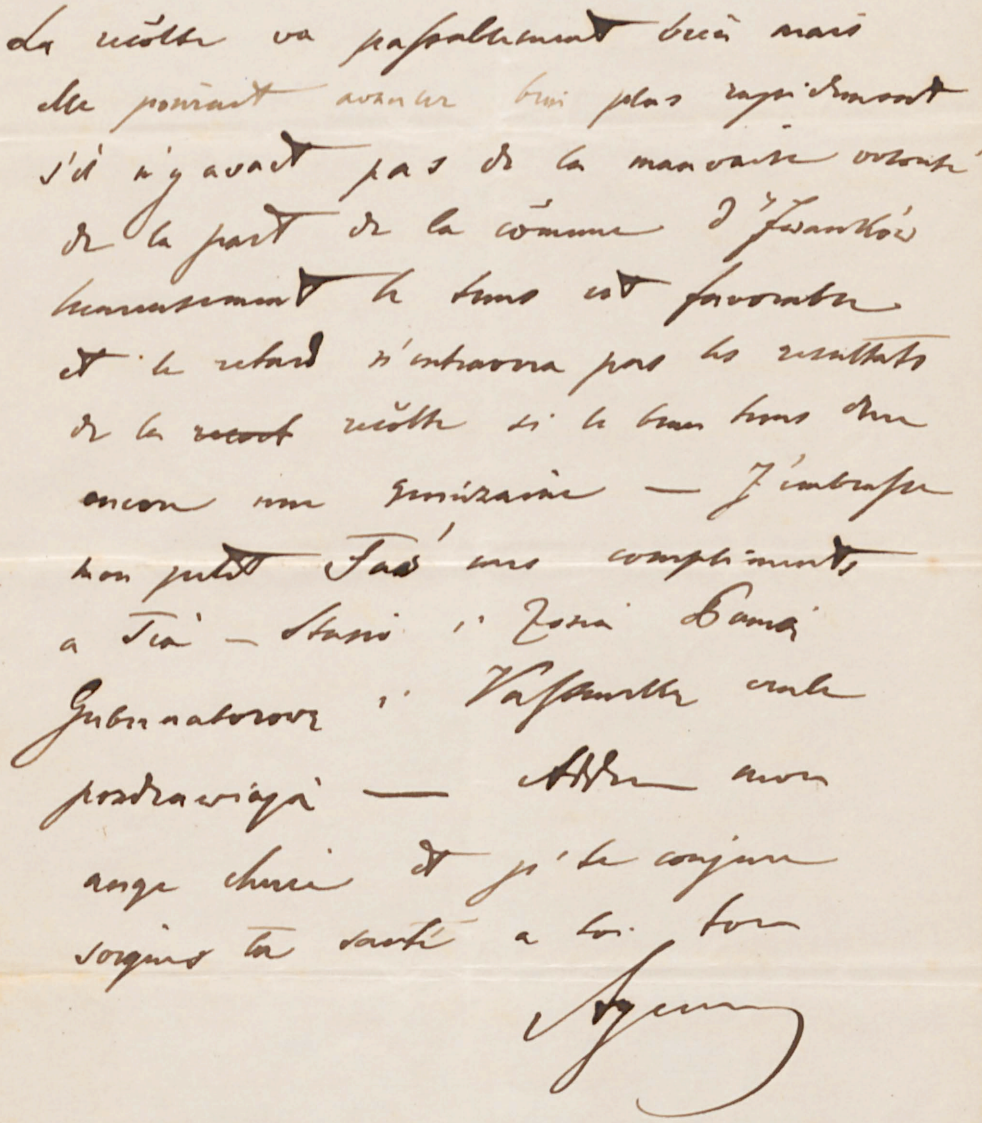 La récolte va passablement bien mais
elle pourait avancer bien plus rapidement
s'il n'y avait pas de la mauvaise volonté
de la part de la cōmune d'Iwanków
heureusement le tems est favorable
et le retard n'entravera pas les resultats
de la recoct récolte si le beau tems dure
encore une quinzaine — J'embrasse
mon petit Taś mes compliments
a Tia — Stasio i Zosia Panią
Gubernatorową i
pozdrawiają — Adieu mon
ange cherie et je te conjure
soignes ta santé a toi ton